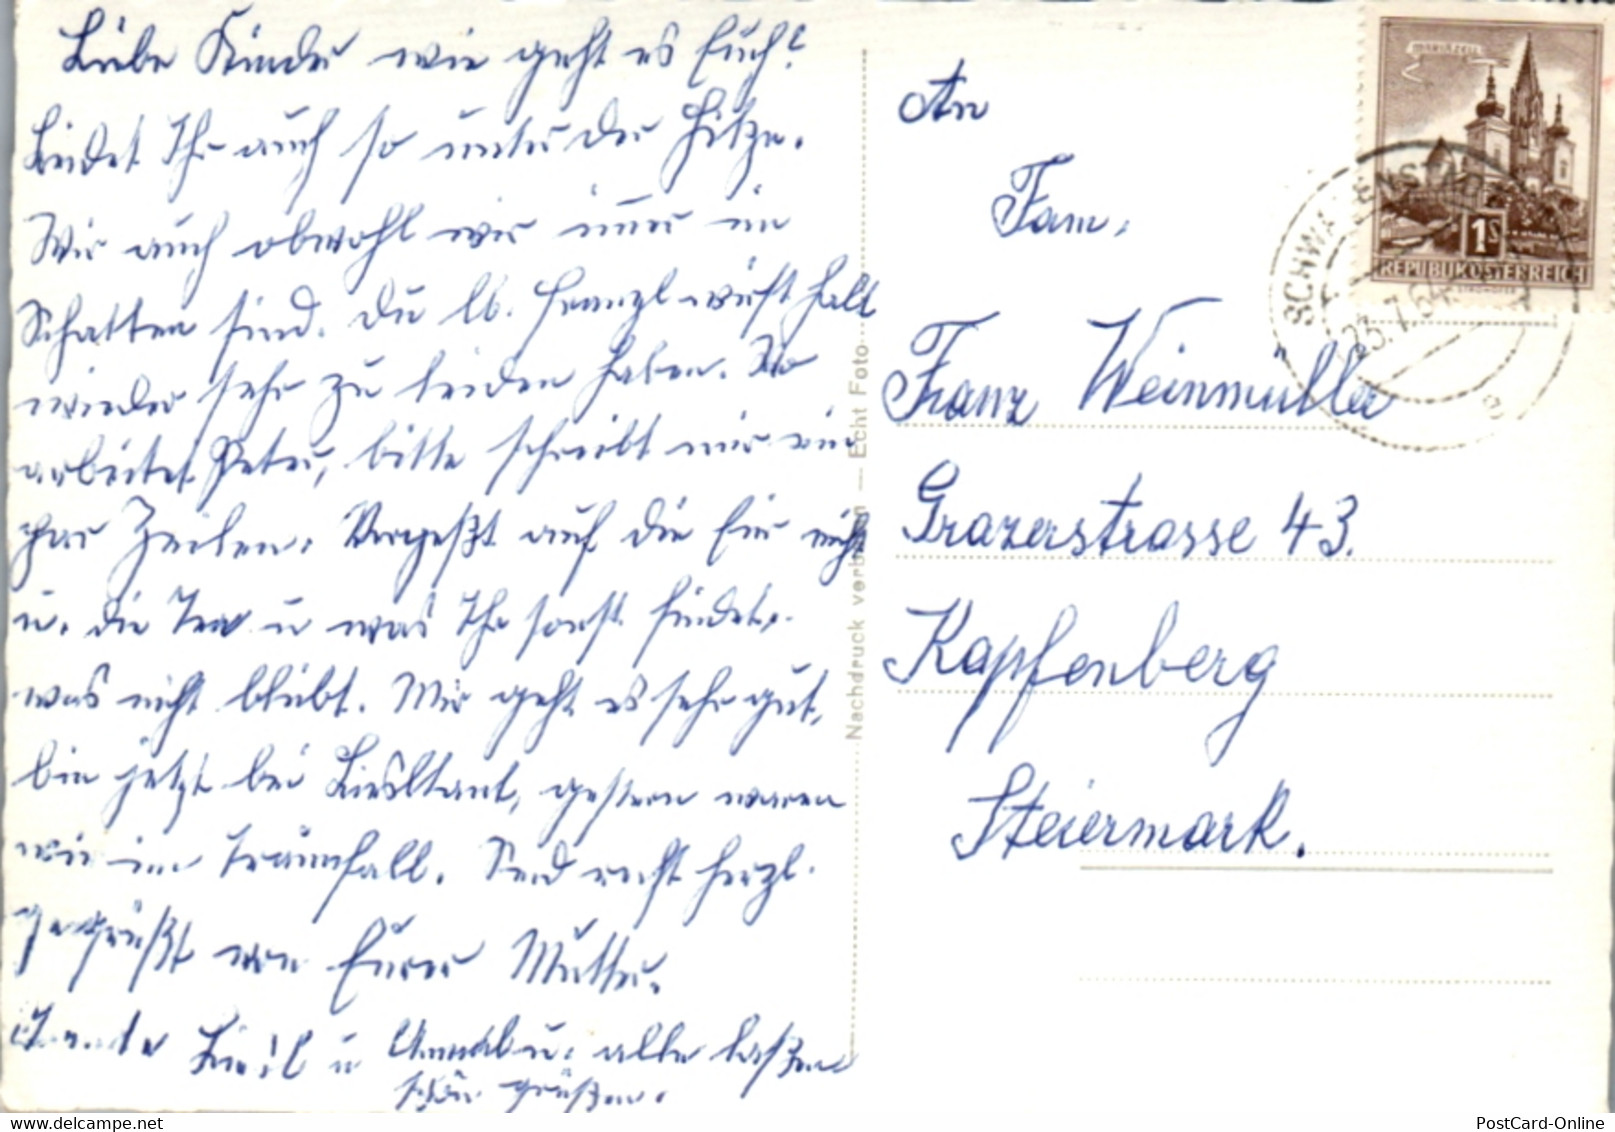 Liebe Kinder wie geht es Euch?
Leidet Ihr auch so unter der Hitze.
Wir auch obwohl wir immer im
Schatten sind. Du lb. Franzl wirst halt
wieder sehr zu leiden haben. Wo
arbeitet Peter, bitte schreibt mir ein
paar Zeilen. Vergeßt auf die Eier nicht
u. die Tea u was Ihr sonst findet,
was nicht bleibt. Mir geht es sehr gut,
bin jetzt bei Liesltant, gestern waren
wir im Traunfall. Seid recht herzl.
gegrüßt von Eurer Mutter.
Tante Liesl u alle laßen
schön grüßen.
Nachdruck verboten — Echt Foto
An
Fam.
Franz Weinmüller
Grazerstrasse 43.
Kapfenberg
Steiermark.
MARIAZELL
1S
REPUBLIK ÖSTERREICH
SCHWANENSTADT
23.7.64
PostCard-Online